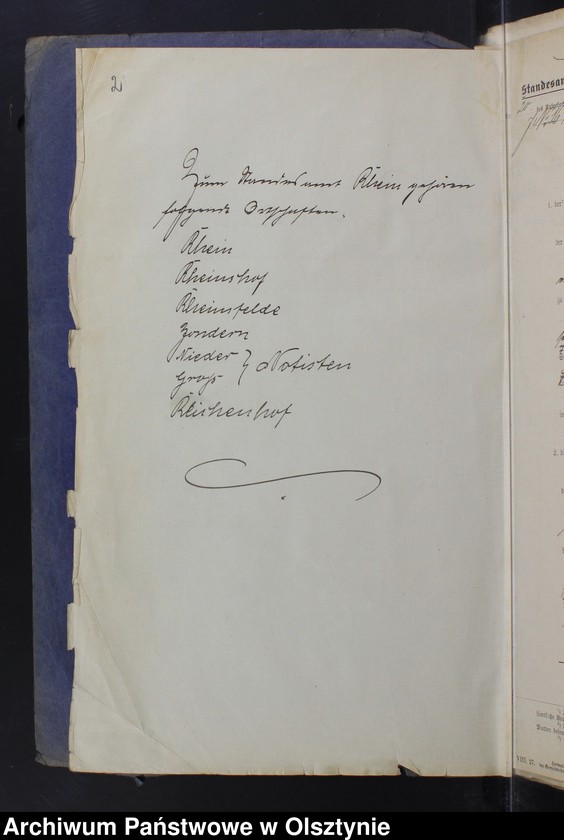 2
Zum Standesamt Rhein gehören
folgende Ortschaften.
Rhein
Rheinshof
Rheinsfelde
Zondern
Nieder } Notisten
Groß
Reichenhof
Standesam
1. der
der
2. b
VIII. 27.
Archiwum Państwowe w Olsztynie